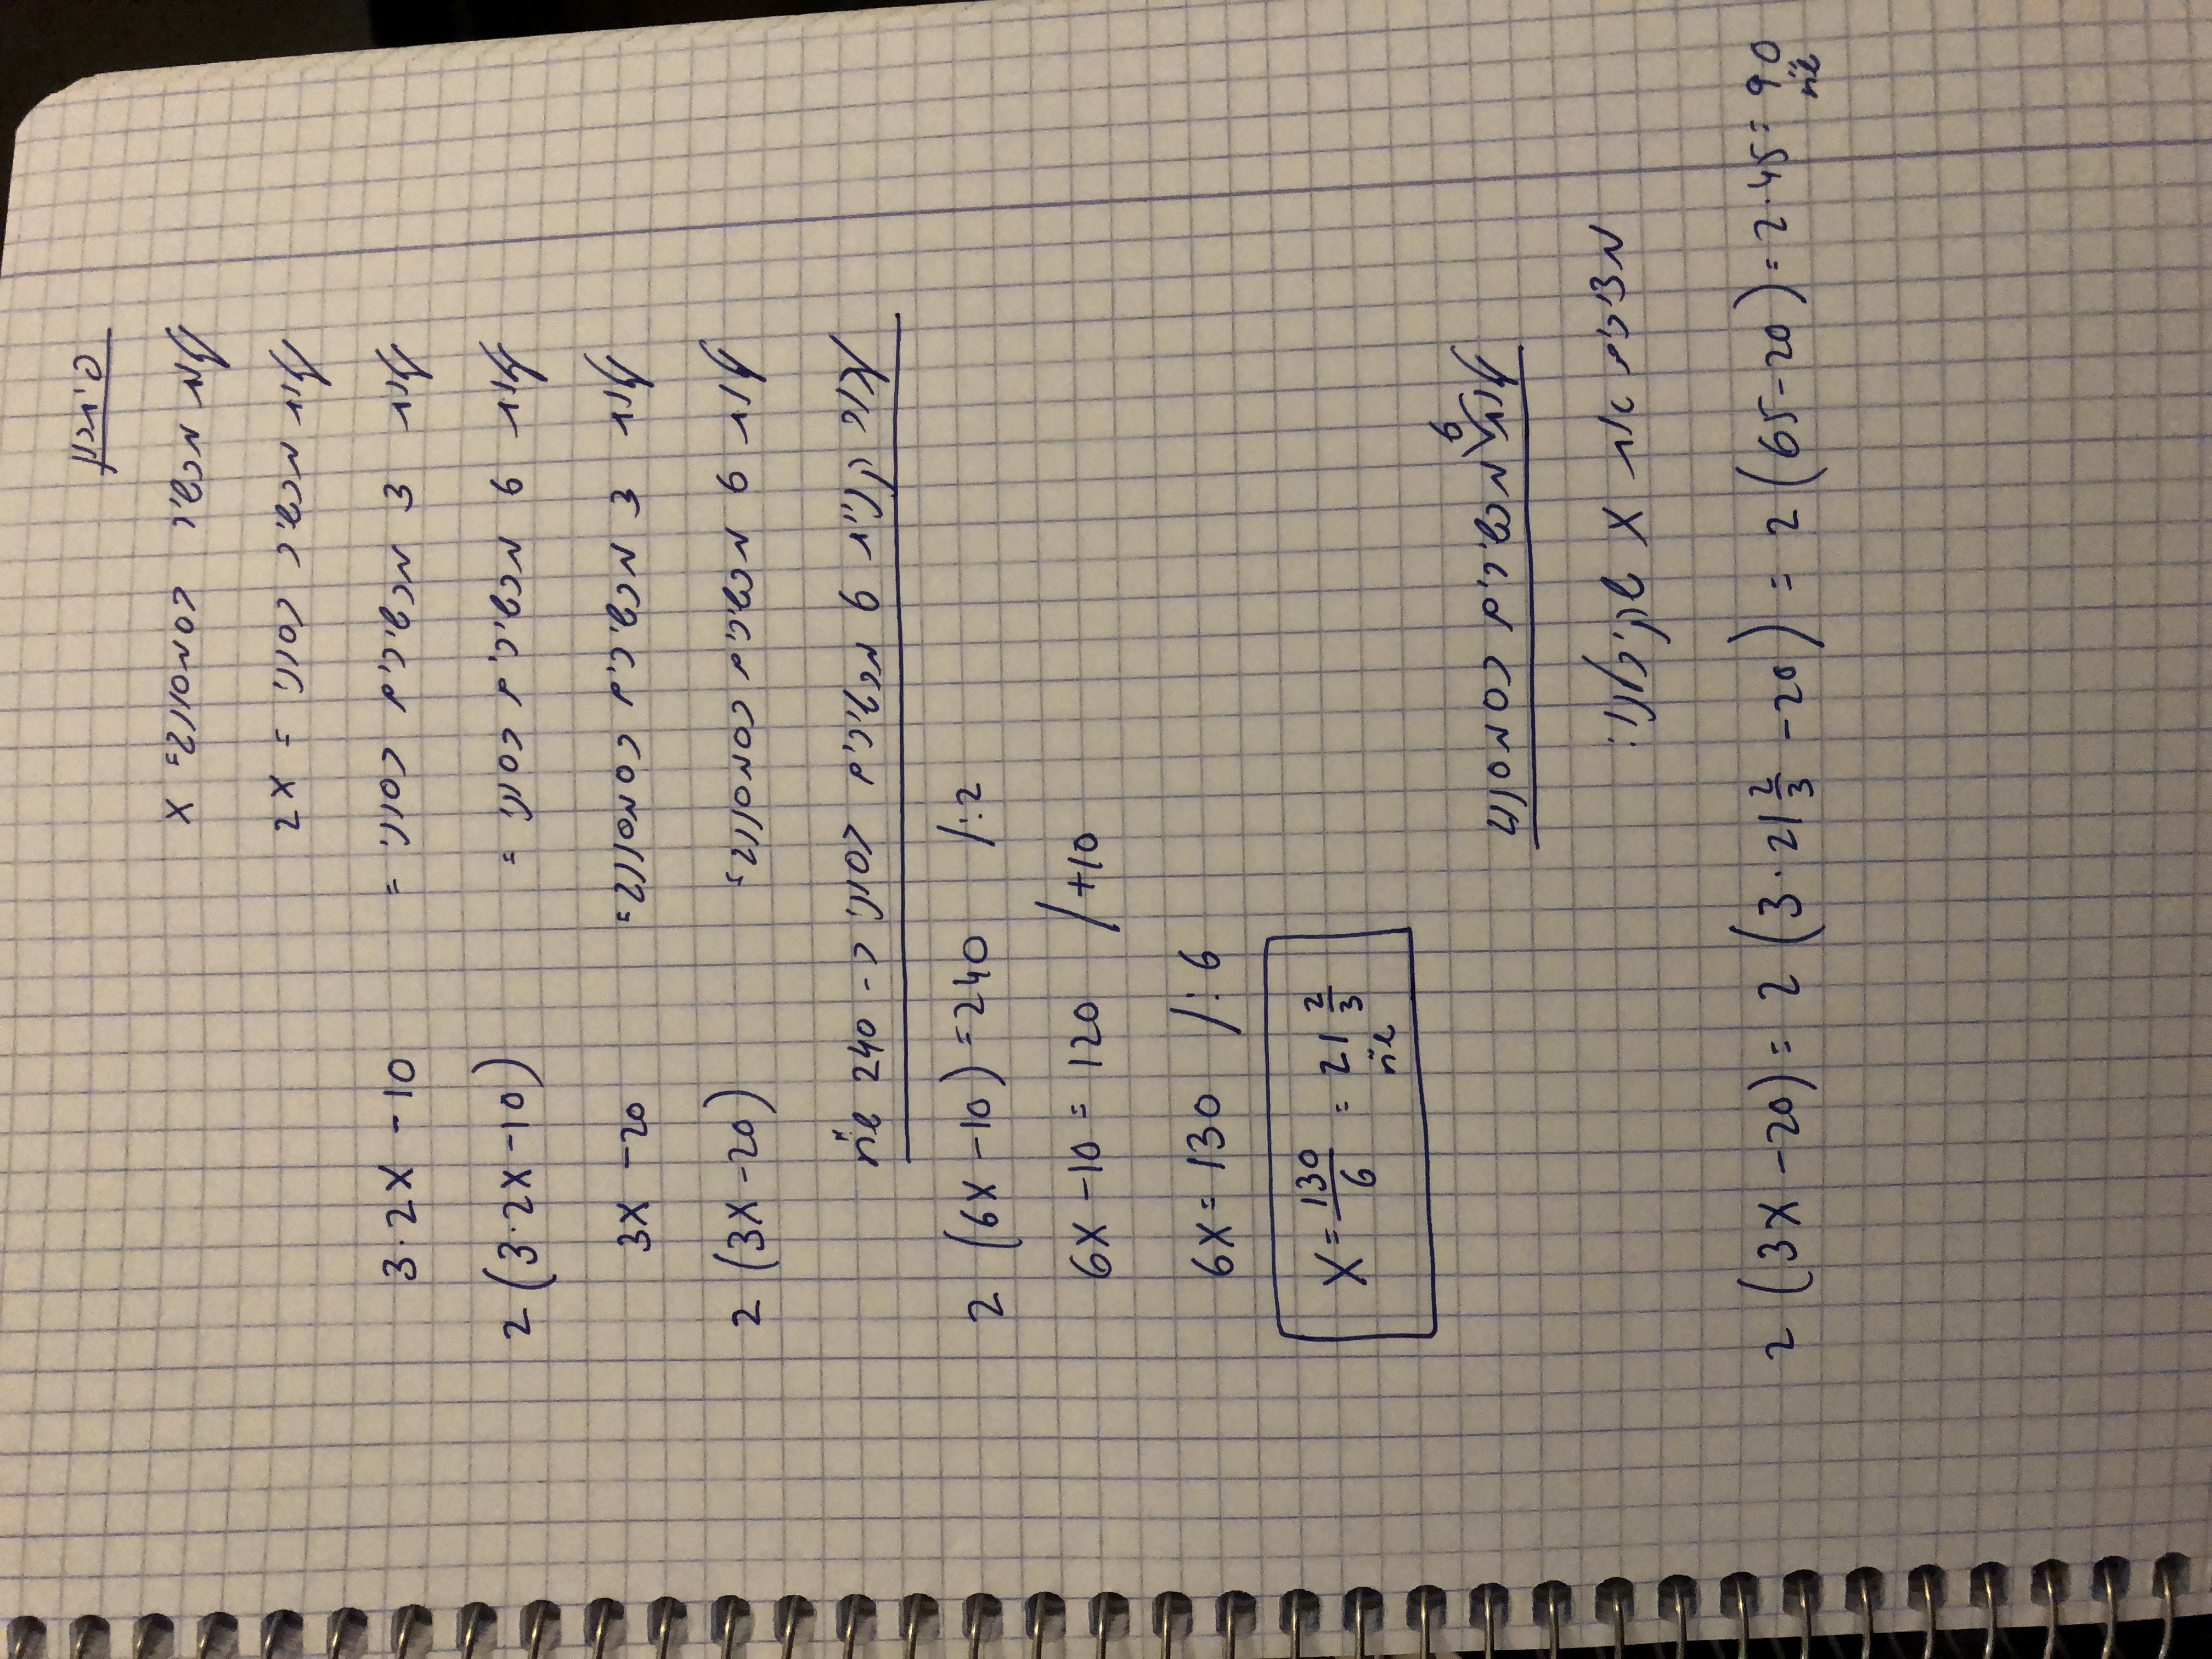 פיתרון
עלות מכשיר בסמסונג: X
עלות מכשיר בסוני = 2X
עלות 3 מכשירים בסוני = 3·2X -10
עלות 6 מכשירים בסוני = 2(3·2X-10)
עלות 3 מכשירים בסמסונג: 3X -20
עלות 6 מכשירים בסמסונג: 2(3X-20)
עבור קניית 6 מכשירים בסוני ב- 240 ש"ח
2 (6X -10) = 240 /:2
6X -10 = 120 /+10
6X = 130 /:6
X = 130/6 = 21 2/3
ש"ח
עלות 6 מכשירים בסמסונג
מציבים את X שקיבלנו:
2 (3X -20) = 2 (3·21 2/3 -20) = 2 (65-20) = 2·45 = 90
ש"ח